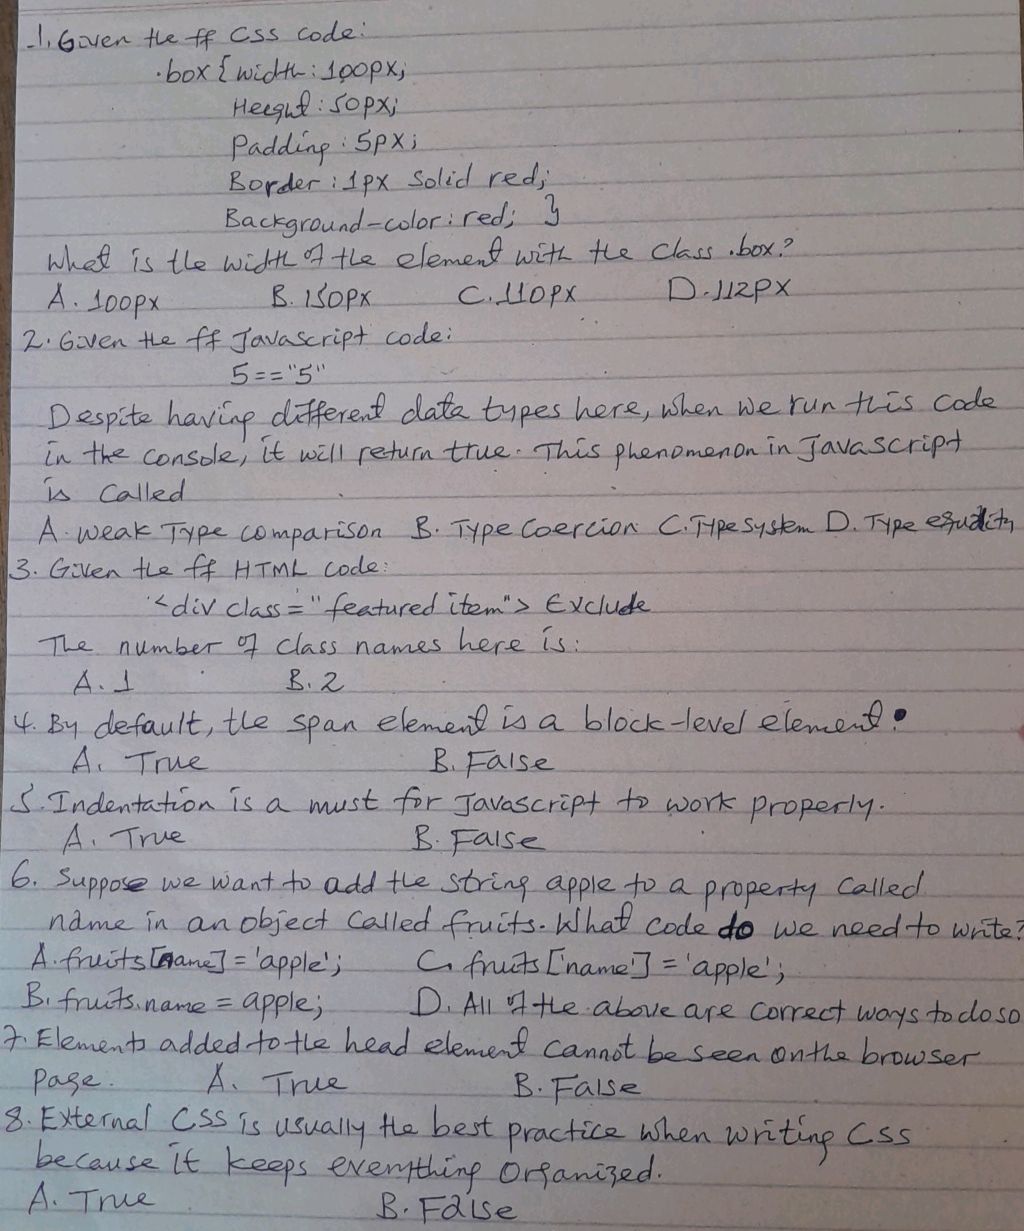 1. Given the ff CSS code:
.box { width: 100px;
Height: 50px;
Padding: 5px;
Border: 1px Solid red;
Background-color: red; }
What is the width of the element with the class .box?
A. 100px B. 150px C. 110px D. 112px
2. Given the ff Javascript code:
5=="5"
Despite having different data types here, when we run this code
in the console, it will return true. This phenomenon in Javascript
is called
A. weak Type comparison B. Type Coercion C. Type system D. Type equality
3. Given the ff HTML code:
<div class="featured item"> Exclude
The number of class names here is:
A. 1 B. 2
4. By default, the span element is a block-level element.
A. True B. False
5. Indentation is a must for Javascript to work properly.
A. True B. False
6. Suppose we want to add the string apple to a property called
name in an object called fruits. What code do we need to write?
A. fruits[name] = 'apple'; C. fruits['name'] = 'apple';
B. fruits.name = apple; D. All of the above are correct ways to do so
7. Elements added to the head element cannot be seen on the browser
page. A. True B. False
8. External CSS is usually the best practice when writing CSS
because it keeps everything organized.
A. True B. False